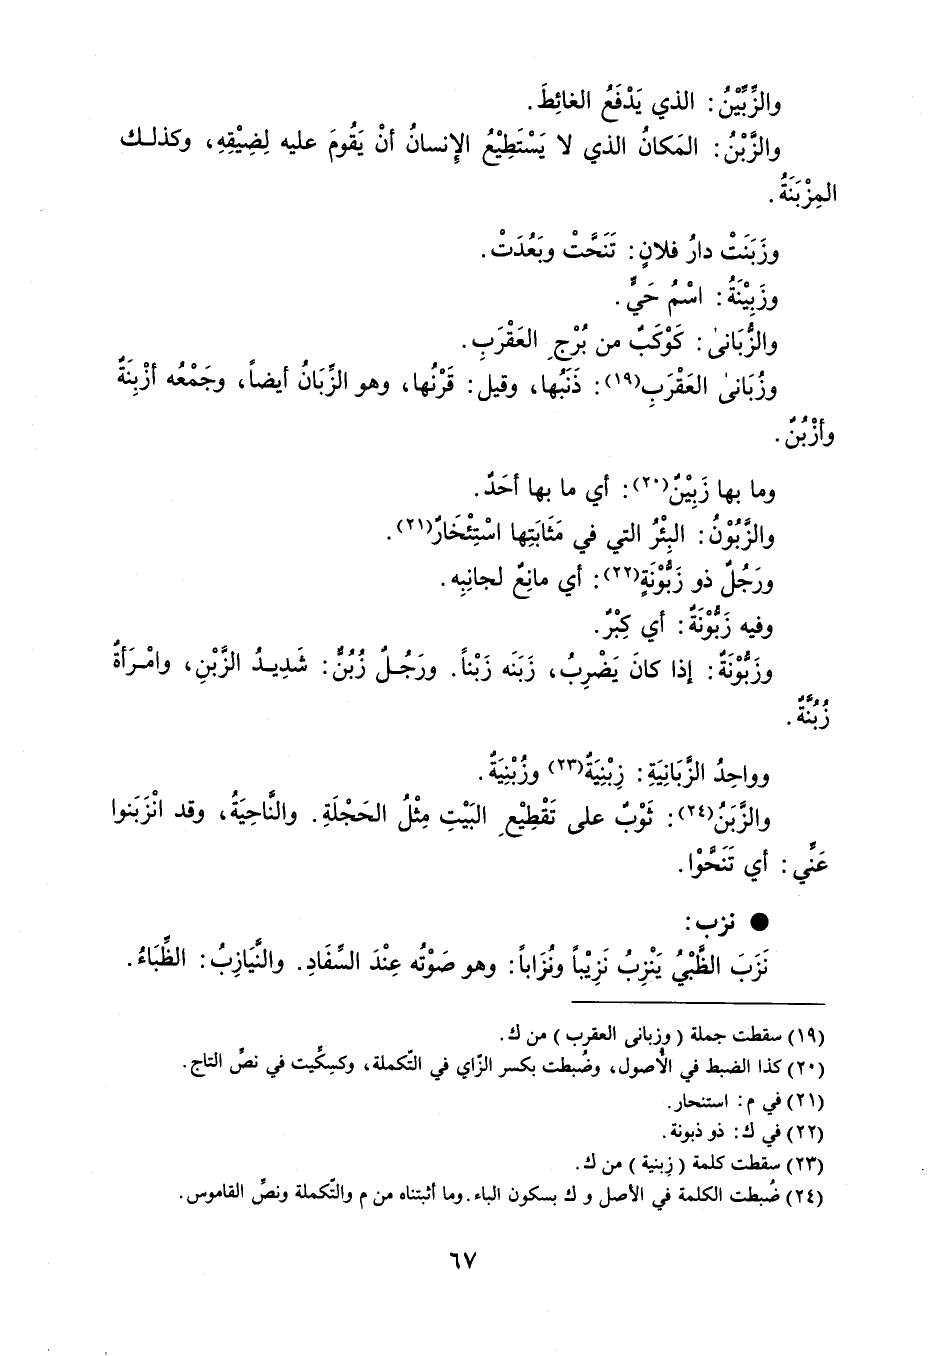 والزِّبِّيْنُ : الذي يَدْفَعُ الغائِطَ .
والزَّبْنُ : المَكانُ الذي لا يَسْتَطِيْعُ الإِنسانُ أنْ يَقُومَ عليه لِضِيْقِهِ ، وكذلك
المِزْبَنَةُ .
وزَبَنَتْ دارُ فلانٍ : تَنَحَّتْ وبَعُدَتْ .
وزَبِيْنَةُ : اسْمُ حَيٍّ .
والزُّبَانىٰ : كَوْكَبٌ من بُرْجِ العَقْرَبِ .
وزُبَانىٰ العَقْرَبِ(١٩) : ذَنَبُها ، وقيل : قَرْنُها ، وهو الزِّبَانُ أيضاً ، وجَمْعُه أزْبِنَةٌ
وأزْبُنٌ .
وما بها زَبِيْنٌ(٢٠) : أي ما بها أحَدٌ .
والزَّبُوْنُ : البِئْرُ التي في مَثَابَتِها اسْتِئْخَارٌ(٢١) .
ورَجُلٌ ذو زَبُّوْنَةٍ(٢٢) : أي مانِعٌ لجانِبِه .
وفيه زَبُّوْنَةٌ : أي كِبْرٌ .
وزَبُّوْنَةٌ : إذا كانَ يَضْرِبُ ، زَبَنَه زَبْناً . ورَجُلٌ زُبُنٌّ : شَدِيدُ الزَّبْنِ ، وامْرَأةٌ
زُبُنَّةٌ .
وواحِدُ الزَّبَانِيَةِ : زِبْنِيَةٌ(٢٣) وزُبْنِيَةٌ .
والزَّبَنُ(٢٤) : ثَوْبٌ على تَقْطِيْعِ البَيْتِ مِثْلُ الحَجْلَةِ . والنَّاحِيَةُ ، وقد انْزَبَنوا
عَنِّي : أي تَنَحَّوْا .
● نزب :
نَزَبَ الظَّبْيُ يَنْزِبُ نَزِيْباً ونُزَاباً : وهو صَوْتُه عِنْدَ السِّفَادِ . والنَّيَازِبُ : الظِّبَاءُ .
(١٩) سقطت جملة ( وزبانى العقرب ) من ك .
(٢٠) كذا الضبط في الأُصول ، وضُبطت بكسر الزّاي في التّكملة ، وكسِكّيت في نصِّ التاج .
(٢١) في م : استنحار .
(٢٢) في ك : ذو ذبونة .
(٢٣) سقطت كلمة ( زبنية ) من ك .
(٢٤) ضُبطت الكلمة في الأصل و ك بسكون الباء . وما أثبتناه من م والتّكملة ونصِّ القاموس .
٦٧